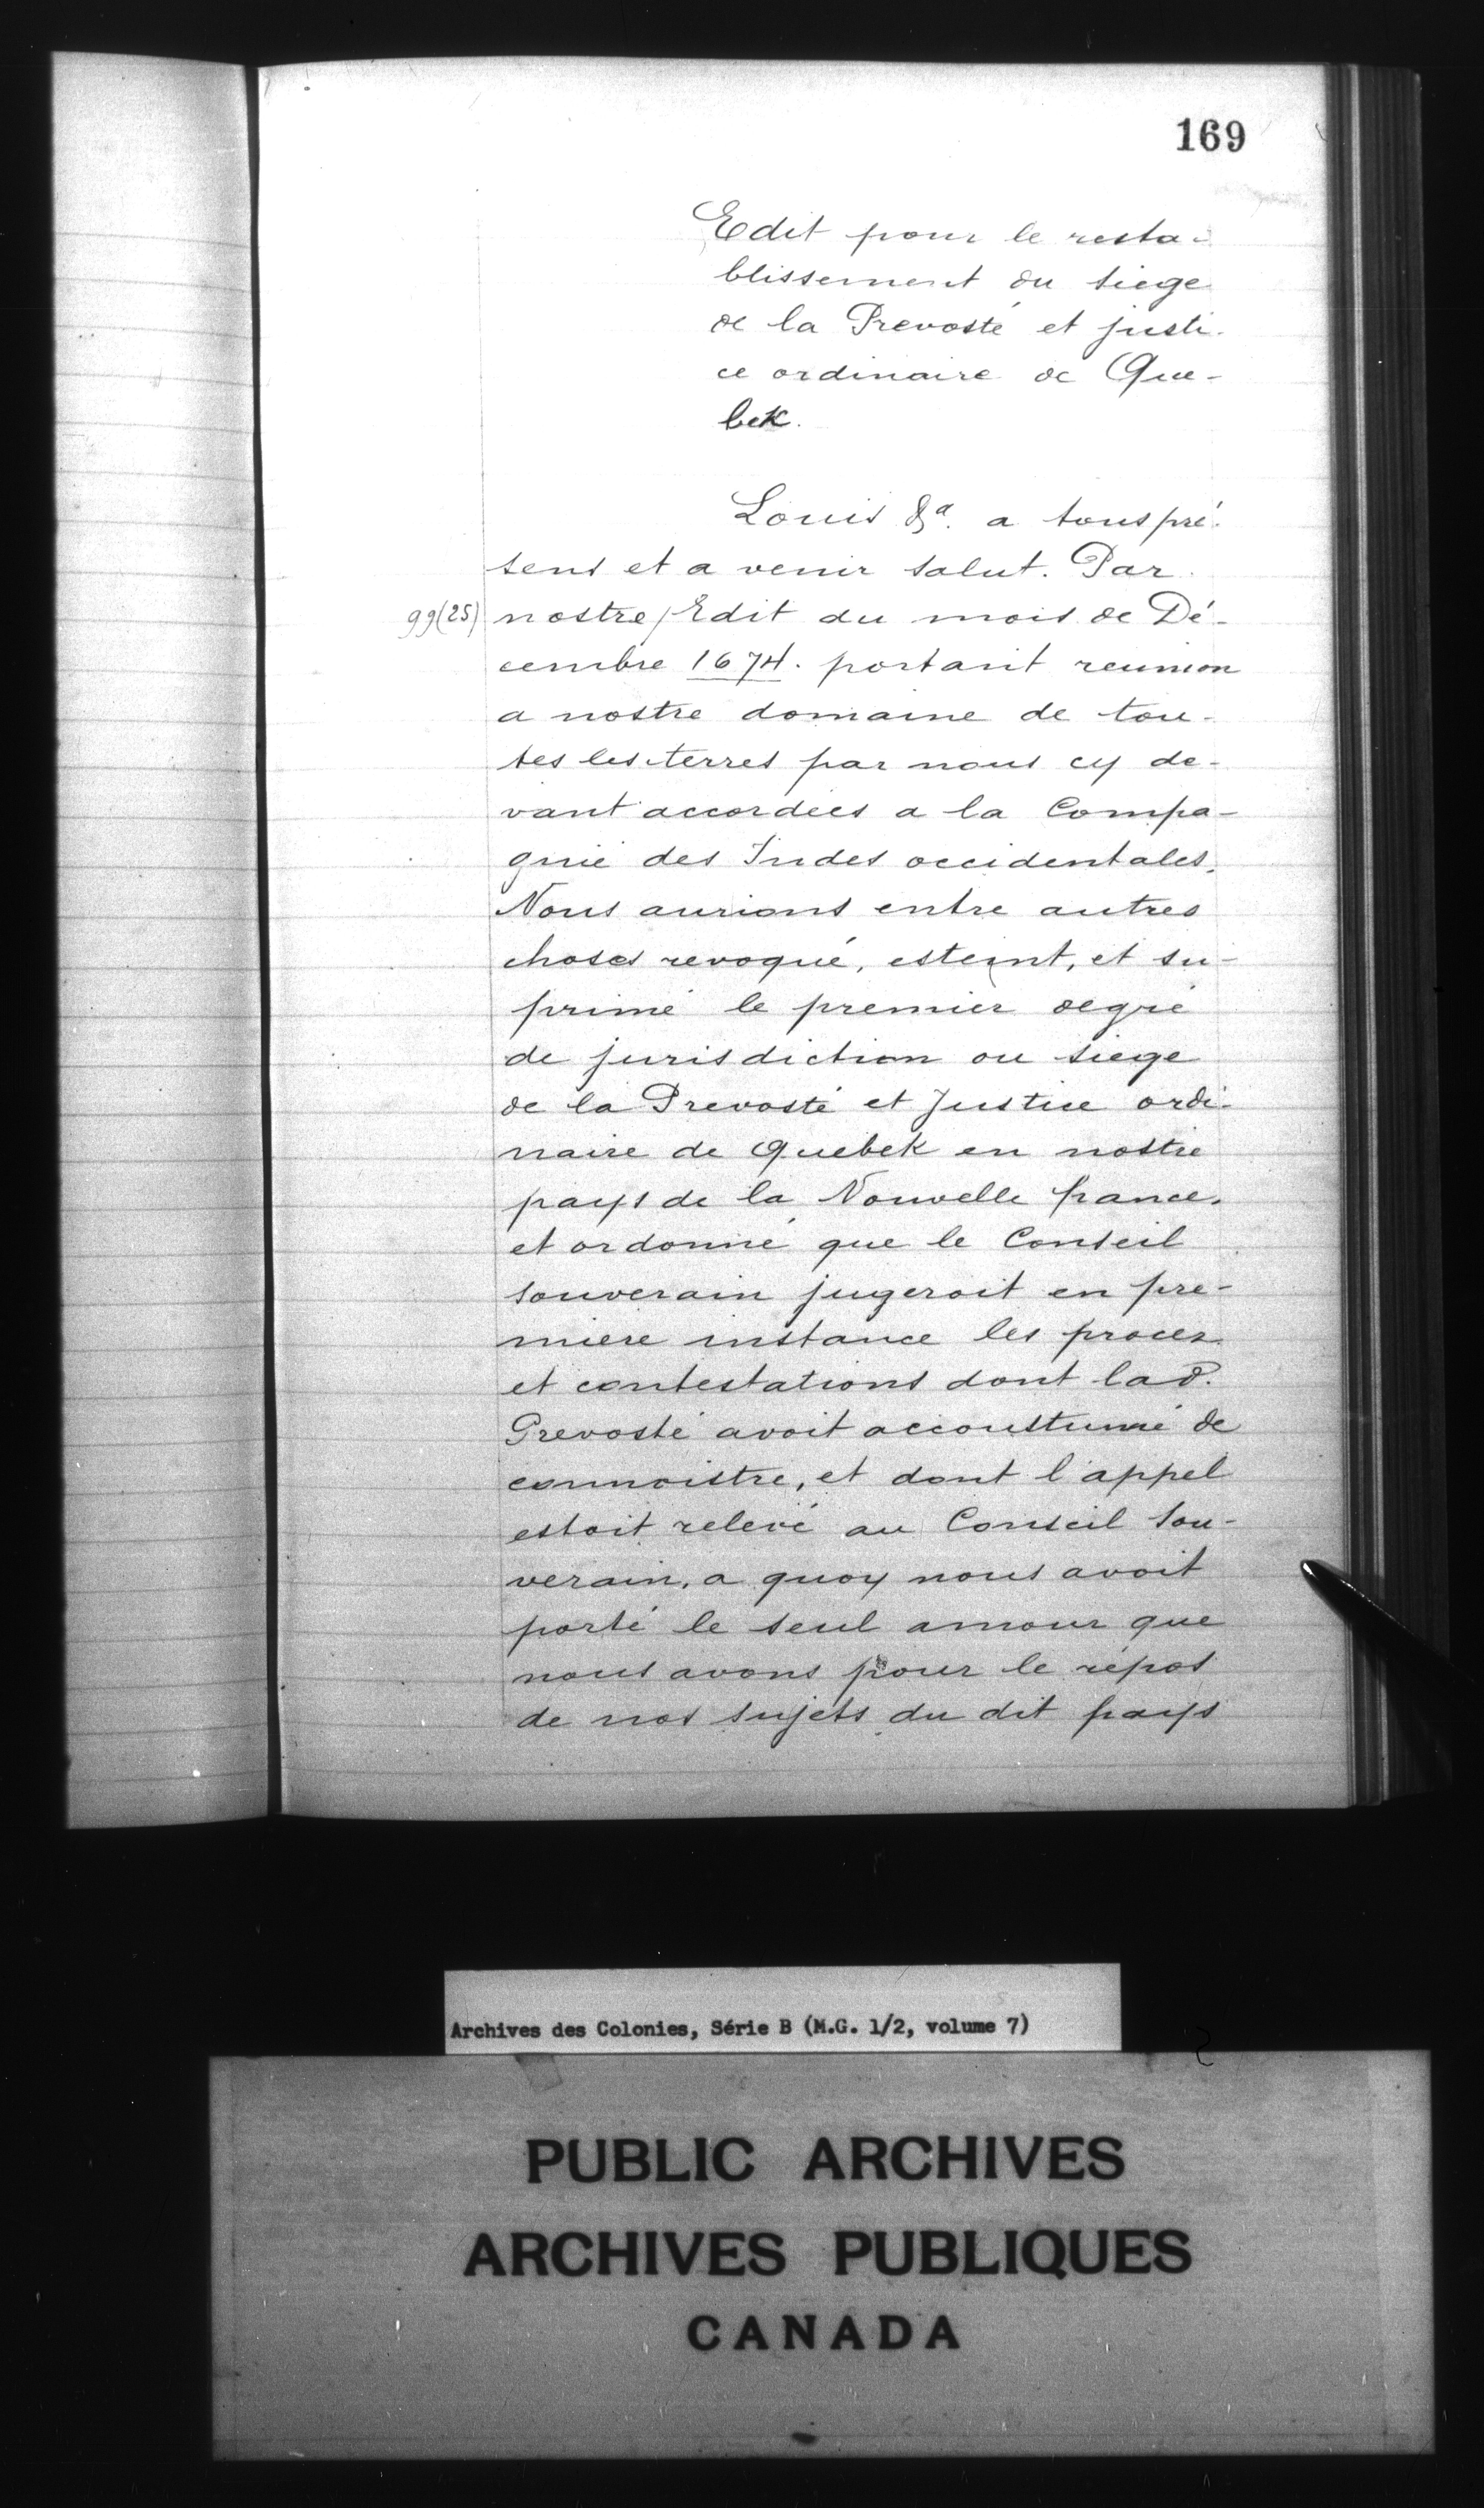 169
Edit pour le resta-
blissement du siege
de la Prevosté et justi-
ce ordinaire de Que-
bek.
Louis &a. a tous pré-
sens et a venir salut. Par
99(25) nostre/Edit du mois de Dé-
cembre 1674. portant reunion
a nostre domaine de tou-
tes les terres par nous cy de-
vant accordées a la Compa-
gnie des Indes occidentales,
Nous aurions entre autres
choses revoqué, esteint, et su-
primé le premier degré
de jurisdiction ou siege
de la Prevosté et Justice ordi-
naire de Quebek en nostre
pays de la Nouvelle france,
et ordonné que le Conseil
souverain jugeroit en pre-
miere instance les procez
et contestations dont lad.
Prevosté avoit accoustumé de
connoistre, et dont l'appel
estoit relevé au Conseil sou-
verain, a quoy nous avoit
porté le seul amour que
nous avons pour le repos
de nos sujets du dit pays
Archives des Colonies, Série B (M.G. 1/2, volume 7)
PUBLIC ARCHIVES
ARCHIVES PUBLIQUES
CANADA